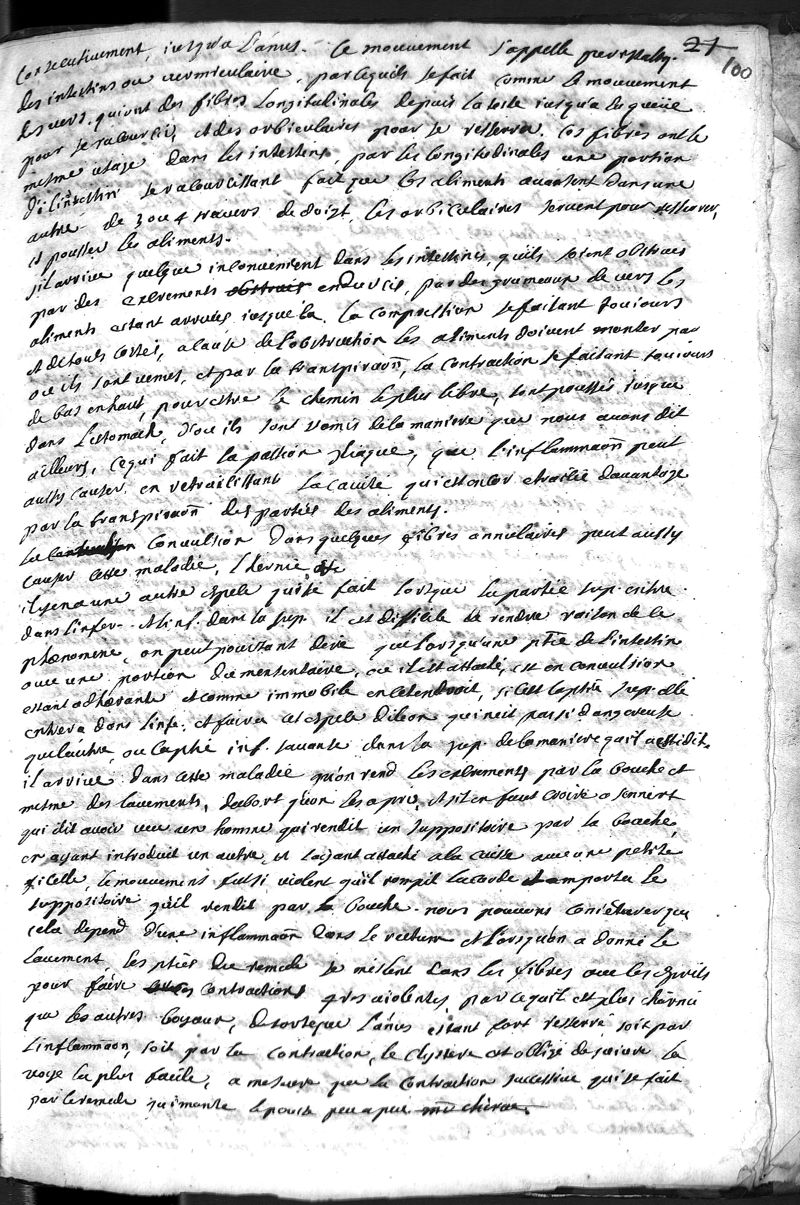 21
100
consecutivement, jusqu'a L'anus. Ce mouvement s'appelle peristalti.
des intestins ou vermiculaire, parcequils se fait comme le mouvement
des vers, qui ont des fibres Longitudinales depuis la teste jusqu'a la queüe
pour se racourcir, et des orbiculaires pour se resserrer. Ces fibres ont le
mesme usage dans les intestins, par les longitudinales une portion
d'intestin se racourcissant fait que les aliments avansent dans une
autre de 3 ou 4 travers de doigt, les orbiculaires servent pour resserrer,
et pousser les aliments.
s'il arrive quelque inconvenient dans les intestins, quils soient obstrues
par des excrements endurcis, par des grumeaux de vers les
aliments estant arrivés jusque la. La compression se faisant toujours
et de tous costés, a cause de l'obstruction les aliments doivent monter par
ou ils sont venus, et par la transpiraõn, la contraction se faisant toujours
de bas en haut, pour estre le chemin le plus libre, sont poussés jusque
dans l'estomach, d'ou ils sont vomis de la maniere que nous avons dit
ailleurs, ce qui fait la passion iliaque, que l'inflammaõn peut
aussy causer en retraicissant la cavité qui est encor etraicie davantage
par la transpiraõn des parties des aliments.
La convulsion dans quelques fibres annulaires peut aussy
causer cette maladie, l'hernie
il y en a une autre espece qui se fait lorsque la partie sup. entre
dans l'infer. et l'inf. dans la sup. il est difficile de rendre raison de ce
phœnomene, on peut pourtant dire que lorsqu'une ptie de l'intestin
avec une portion du mesentaire, ou il est attaché, est en convulsion
estant adherante et comme immobile en cet endroit, si c'est la ptie sup. elle
entrera dans l'infe. et faira cet espece d'ileon qui n'est pas si dangereuse
que l'autre, ou la ptie inf. s'avance dans la sup. de la maniere qu'il a esté dit.
il arrive dans cette maladie qu'on rend les excrements par la bouche et
mesme des lavements, d'abort qu'on les a pris, et s'il en faut croire a sennert
qui dit avoir veu un homme qui rendit un suppositoire par la bouche,
en ayant introduit un autre, et l'ayant attaché a la cuisse avec une petite
ficelle, le mouvement fut si violent qu'il rompit la corde emporta le
suppositoire qu'il rendit par la bouche. nous pouvons que
cela depend d'une inflammaõn dans le rectum et lorsqu'on a donné le
lavement les pties du remede se meslent dans les fibres avec les esprits
pour faire contractions tres violentes, parce qu'il est plus charnu
que les autres boyaux, de sorte que l'anus estant fort resserré soit par
l'inflammaõn, soit par la contraction, le clystere est obligé de suivre la
voye la plus facile, a mesure que la contraction successive qui se fait
par le remede qui monte le pousse peu a peu